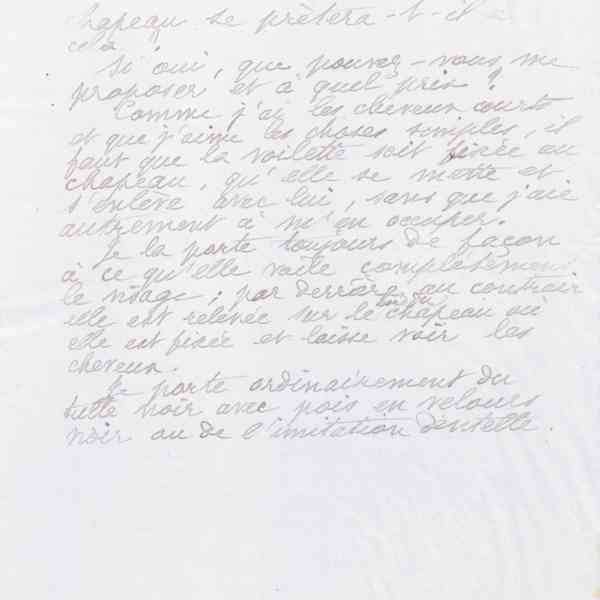 chapeau se prêtera-t-il à
cela
Si oui, que pouvez-vous me
proposer et à quel prix ?
Comme j'ai les cheveux courts
et que j'aime les choses simples, il
faut que la voilette soit fixée au
chapeau, qu'elle se mette et
s'enlève avec lui, sans que j'aie
autrement à m'en occuper.
Je la porte toujours de façon
à ce qu'elle voile complètement
le visage ; par derrière au contraire
elle est relevée sur le chapeau où
elle est fixée et laisse voir les
cheveux.
Je porte ordinairement du
tulle noir avec pois en velours
noir ou de l'imitation dentelle.